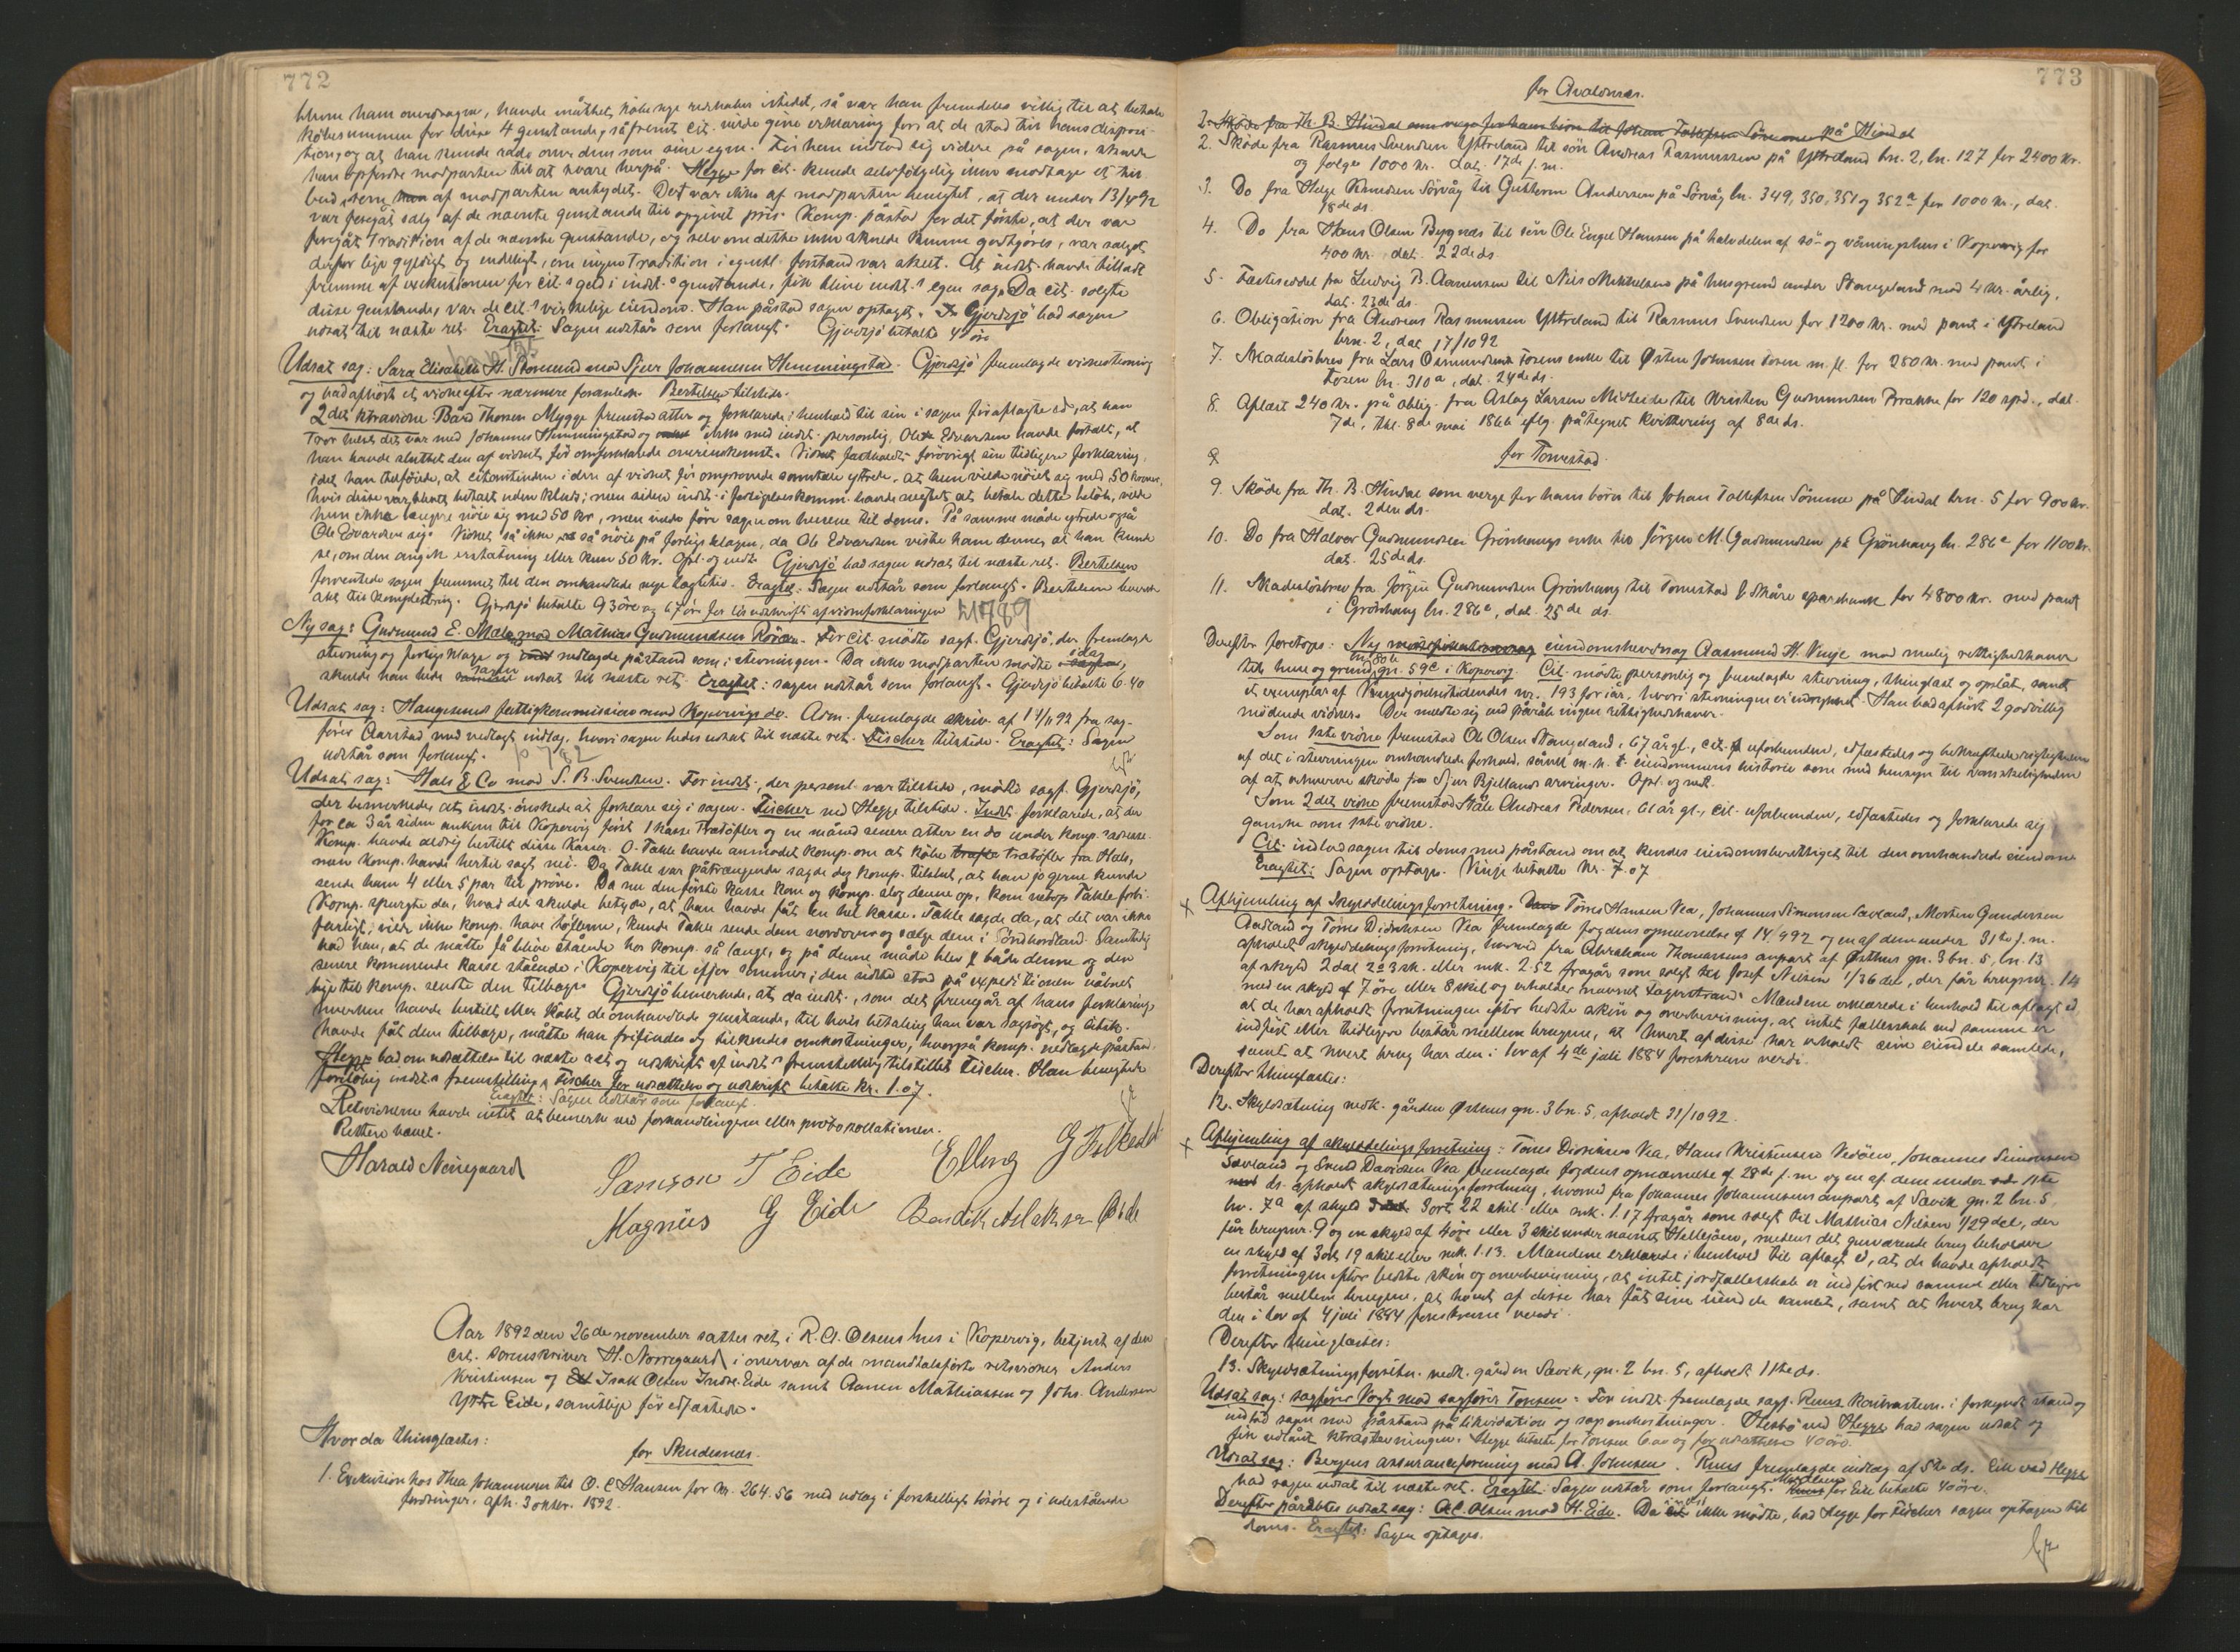 772
blivne ham overdragne, havde måttet købe nye redskaber istedet, så var han fremdeles villig til at betale
købesummen for disse 4 gjenstande, såfremt cit. vilde give erklæring for at de stod til hans disposi-
tion, og at han kunde råde over dem som sine egne. Før han indlod sig videre på sagen, skulde
han opfordre modparten til at svare herpå. Hegge for cit. kunde selvfølgelig ikke modtage et til-
bud, som af modparten antydet. Det var ikke af modparten benegtet, at der under 13/4 92
var foregåt salg af de nævnte gjenstande til opgivet pris. Komp. påstod for det første, at der var
foregåt tradition af de nævnte gjenstande, og selv om dette ikke skulde kunne godtgjøres, var salget
derfor lige gyldigt og endeligt, om ingen tradition i egentl. forstand var skeet. At indst. havde tilladt
fremme af exekutionen for cit.s gjeld i indst.s gjenstande, fik blive indst.s egen sag. Da cit. solgte
disse gjenstande, var de cit.s virkelige eiendom. Han påstod sagen optaget. Gjerdsjø bad sagen
udsat til næste ret. Eragtet: Sagen udstår som forlangt. Gjerdsjø betalte 40 øre
Udsat sag: Sara Elisabeth H. Stormend mod Sjur Johannesen Hemmingstad. Gjerdsjø fremlagde vidnestevning
og bad afhørt et vidne efter nærmere foranledn. Bertelsen tilstede.
2det ktravidne Bård Thorsen Mygge fremstod atter og forklarede i henhold til sin i sagen før aflagte ed, at han
tror helst det var med Johannes Hemmingstad og ikke med indst. personlig, Ole Edvardsen havde fortalt, at
han havde sluttet den af vidnet før omforklarede overenskomst. Vidnet fastholdt forøvrigt sin tidligere forklaring,
idet han tilføiede, at citantinden i den af vidnet før omprovede samtale ytrede, at hun vilde nøiet sig med 50 kroner,
hvis disse var blevet betalt uden kluds; men siden indst. i forligelseskomm. havde negtet at betale dette beløb, vilde
hun ikke længere nøie sig med 50 kr, men vilde føre sagen om hønene til doms. På samme måde ytrede også
Ole Edvardsen sig. Vidnet så ikke så nøie på forligsklagen, da Ole Edvardsen viste ham denne, at han kunde
se, om den angik erstatning eller kun 50 kr. Opl. og vedt. Gjerdsjø bad sagen udsat til næste ret. Bertelsen
forventede sagen fremmet til den omhandlede nye lagtetid. Eragtet: Sagen udstår som forlangt. Bertelsen leverede
akt til komplettering. Gjerdsjø betalte 93 øre og 67 øre for løs udskrift af vidneforklaringen 789
Ny sag: Gudmund E. Mæle mod Mathias Gudmundsen Røren. For cit. mødte sagf. Gjerdsjø, der fremlagde
stevning og forligsklage og nedlagde påstand som i stevningen. Da ikke modparten mødte idag,
skulde han bede sagen udsat til næste ret. Eragtet: sagen udstår som forlangt. Gjerdsjø betalte 6.40
Udsat sag: Haugesunds fattigkommission mod Kopervigs do. Adm. fremlagde skriv. af 14/11 92 fra sag-
fører Aarstad med vedlagt indlæg, hvori sagen bedes udsat til næste ret. Fischer tilstede. Eragtet: Sagen
udstår som forlangt. p 782
Udsat sag: Hals & Co mod S. B. Svendsen. For indst., der personl. var tilstede, mødte sagf. Gjerdsjø,
der bemerkede, at indst. ønskede at forklare sig i sagen. Fischer ved Hegge tilstede. Indst. forklarede, at der
for ca 3 år siden ankom til Kopervig først 1 kasse trætøfler og en måned senere atter en do under komp. adresse.
Komp. havde aldrig bestilt disse kasser. O. Takle havde anmodet komp. om at købe trætøfler fra Hals,
men komp. havde hertil sagt nei. Da Takle var påtrængende sagde dog komp. tilslut, at han jo gerne kunde
sende ham 4 eller 5 par til prøve. Da nu den første kasse kom og komp. slog denne op, kom netop Takle forbi.
Komp. spurgte da, hvad det skulde betyde, at han havde fåt en hel kasse. Takle sagde da, at det var ikke
farligt; vilde ikke komp. have tøflerne, kunde Takle sende dem nordover og sælge dem i Søndhordland. Samtidig
bad han, at de måtte få blive stående hos komp. så længe, og på denne måde blev både denne og den
senere kommende kasse stående i Kopervig til ifjor sommer; den sidste stod på expeditionen uåbnet
lige til komp. sendte den tilbage. Gjerdsjø bemerkede, at da indst., som det fremgår af hans forklaring,
hverken havde bestilt eller købt de omhandlede gjenstande, til hvis betaling han var sagsøgt, og citst.
havde fåt dem tilbage, måtte han frifindes og tilkendes omkostninger, hvorpå komp. nedlagde påstand.
Hegge bad om udsættelse til næste ret og udskrift af indst.s fremstilling tilstillet Fischer. Han benegtede
foreløbig indst.s fremstilling. Fischer for udsættelse og udskrift betalte kr. 1.07.
Eragtet: Sagen udstår som forlangt.
Retsvidnerne havde intet at bemerke ved forhandlingerne eller protokollationen.
Retten hævet.
Harald Nørregaard
Samson T Eide
Elling G Falkeid
Magnus G Eide
Bendik Aslaksen Eide
Aar 1892 den 26de november sattes ret i R. A. Olsens hus i Kopervig, betjent af den
cst. sorenskriver H. Nørregaard i overvær af de mandtalsførte retsvidner Anders
Kristensen og Isak Olsen Indre-Eide samt Aamen Mathiassen og Johs. Andersen
Ytre Eide, samtlige før edfæstede.
Hvorda thinglæstes:
for Skudesnæs.
1. Exekution hos Thea Johannesen til O. C. Hansen for kr. 264.56 med udlæg i forskelligt løsøre og i udestående
fordringer, afh. 3 oktbr. 1892.
773
for Avaldsnæs.
2. Skøde fra Th. B. Hindal som verge for hans børn til Johan Tollefsen Sømme på Hindal
2. Skøde fra Rasmus Svendsen Ytreland til søn Andreas Rasmussen på Ytreland bn. 2, ln. 127 for 2400 kr.
og følge 1000 kr. dat. 17de f. m.
3. Do fra Helge Knudsen Sørvåg til Guttorm Andersen på Sørvåg ln. 349, 350, 351 og 352a for 1000 kr., dat.
18de ds.
4. Do fra Hans Olsen Bygnæs til søn Ole Engel Hansen på halvdelen af sø- og våningshus i Kopervig for
400 kr. dat. 22de ds
5. Fæsteseddel fra Ludvig B. Aamundsen til Nils Mikkelsen på husgrund under Stangeland mod 4 kr. årlig,
dat. 23de ds.
6. Obligation fra Andreas Rasmussen Ytreland til Rasmus Svendsen for 1200 kr. med pant i Ytreland
brn. 2, dat. 17/10 92
7. Skadesløsbrev fra Lars Osmundsen Fosens enke til Østen Johnsen Fosen m. fl. for 280 kr. med pant i
Fosen ln. 310a, dat. 24de ds.
8. Aflæst 240 kr. på oblig. fra Aslag Larsen Midtleide til Kristen Gudmundsen Brakke for 120 spd., dat.
7de, thl. 8de mai 1866 eflg. påtegnet kvittering af 8de ds.
for Torvestad.
9. Skøde fra Th. B. Hindal som verge for hans børn til Johan Tollefsen Sømme på Hindal brn. 5 for 900 kr.
dat. 2den ds.
10. Do fra Halvor Gudmundsen Grønhaugs enke til Jørgen M. Gudmundsen på Grønhaug ln. 286a for 1100 kr.
dat. 25de ds.
11. Skadesløsbrev fra Jørgen Gudmundsen Grønhaug til Torvestad & Skåre sparebank for 4800 kr. med pant
i Grønhaug ln. 286a, dat. 25de ds.
Derefter foretoges: Ny eiendomshevdsag Aasmund H. Vinje mod mulig rettighedshaver
til huse og grund gn. 59c i Kopervig. Cit. mødte personlig og fremlagde stevning, thinglæst og opslåt, samt
et exemplar af Kundgjørelsestidendes nr. 193 for iår, hvori stevningen er indrykket. Han bad afhørt 2 godvillig
mødende vidner. Der meldte sig ved påråb ingen rettighedshaver.
Som 1ste vidne fremstod Ole Olsen Stangeland, 67 år gl., cit. uforbunden, edfæstedes og bekræftede rigtigheden
af det i stevningen omhandlede forhold, såvel m. h. t. eiendommens historie som med hensyn til vanskeligheden
af at erhverve skøde fra Sjur Bjellands arvinger. Opl. og vedt.
Som 2det vidne fremstod Ståle Andreas Pedersen, 61 år gl., cit. uforbunden, edfæstedes og forklarede sig
ganske som 1ste vidne.
Cit. indlod sagen til doms med påstand om at kendes eiendomsberettiget til den omhandlede eiendom.
Eragtet: Sagen optages. Vinje betalte kr. 7.07
x Afhjemling af skylddelingsforretning. Tørres Hansen Vea, Johannes Simonsen Sævland, Morten Gundersen
Aadland og Tørres Didriksen Vea fremlagde fogdens opnævnelse af 14/9 92 og en af dem under 31te f. m.
afholdt skylddelingsforretning, hvorved fra Abraham Thomassens anpart af Østhus gn. 3 bn. 5, ln. 13
af skyld 2 dal 2 o 3 sk. eller mk. 2.52 fragår som solgt til Josef Nilsen 1/36 del, der får brugsnr. 14
med en skyld af 7 øre eller 8 skil og erholder navnet Lagerstrand. Mændene erklærede i henhold til aflagt ed
at de har afholdt forretningen efter bedste skøn og overbevisning, at intet fællesskab ved samme er
indført eller tidligere består mellem brugene, at hvert af disse har erholdt sin eiendele samlede,
samt at hvert brug har den i lov af 4de juli 1884 foreskrevne verdi.
Derefter thinglæstes:
12. Skyldsætning vedk. gården Østhus gn. 3 bn. 5, afholdt 31/10 92.
x Afhjemling af skylddelingsforretning: Tørres Didriksen Vea, Hans Kristensen Vedøen, Johannes Simonsen
Sævland og Svend Davidsen Vea fremlagde fogdens opnævnelse af 28de f. m. og en af dem under 11te
ds. afholdt skyldsætningsforretning, hvorved fra Johannes Johannesens anpart af Sævik gn. 2 bn. 5,
ln. 7a af skyld 3 ort 22 skil eller mk. 1.17 fragår som solgt til Mathias Nilsen 1/29 del, der
får brugsnr. 9 og en skyld af 4 øre eller 3 skil under navnet Hellesøen, medens det gjenværende brug beholder
en skyld af 3 ort 19 skil eller mk. 1.13. Mændene erklærede i henhold til aflagt ed, at de havde afholdt
forretningen efter bedste skøn og overbevisning, at intet jordfællesskab er indført ved samme eller tidligere
består mellem brugene, at hvert af disse har fåt sin eiendele samlet, samt at hvert brug har
den i lov af 4 juli 1884 foreskrevne verdi.
Derefter thinglæstes:
13. Skyldsætningsforretn. vedk. gården Sævik, gn. 2 bn. 5, afholdt 11te ds.
Udsat sag: sagfører Vogt mod sagfører Tonsen. For indst. fremlagde sagf. Ruus kontrastevn. i forkyndt stand og
indlod sagen med påstand på likvidation og sagsomkostninger. Hesbø ved Hegge bad sagen udsat og
fik udlånt ktrastevningen. Hegge betalte for Tonsen 6.00 og for udsættelse 40 øre.
Udsat sag: Bergens assuranceforening mod A. Johnsen. Ruus fremlagde indlæg af 5te ds. Eide ved Hegge
bad sagen udsat til næste ret. Eragtet: Sagen udstår som forlangt. for Eide betalte 40 øre.
Derefter påråbtes udsat sag: A. C. Olsen mod H. Eide. Da ikke mødte, bad Hegge for Fischer sagen optagen til
doms. Eragtet: Sagen optages.